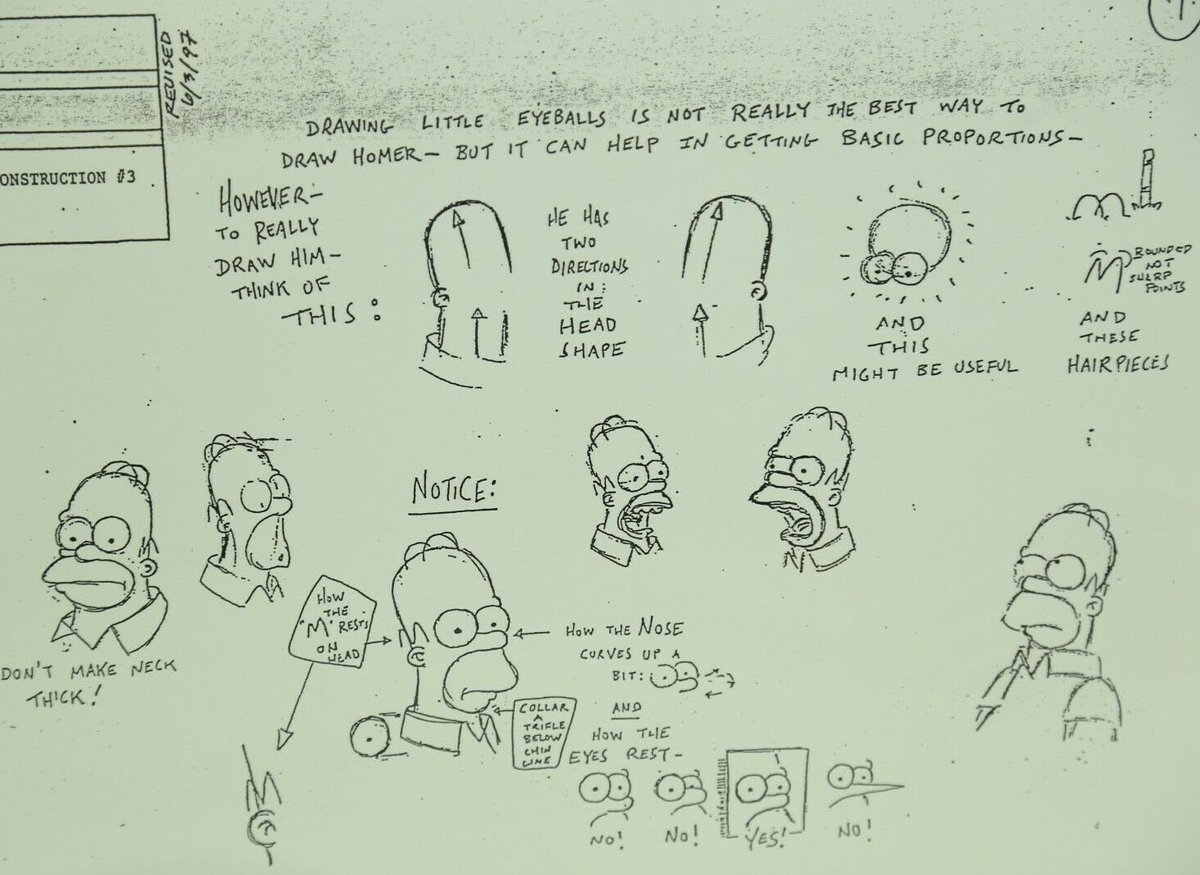 REVISED
6/3/97
ONSTRUCTION #3
DRAWING LITTLE EYEBALLS IS NOT REALLY THE BEST WAY TO
DRAW HOMER— BUT IT CAN HELP IN GETTING BASIC PROPORTIONS—
HOWEVER—
TO REALLY
DRAW HIM—
THINK OF
THIS:
HE HAS
TWO
DIRECTIONS
IN:
THE
HEAD
SHAPE
AND
THIS
MIGHT BE USEFUL
M
ROUNDED
NOT
SHARP
POINTS
AND
THESE
HAIRPIECES
DON'T MAKE NECK
THICK!
NOTICE:
HOW
THE
"M" RESTS
ON
HEAD
HOW THE NOSE
CURVES UP A
BIT:
COLLAR
A
TRIFLE
BELOW
CHIN
LINE
AND
HOW THE
EYES REST—
NO!
NO!
YES!
NO!